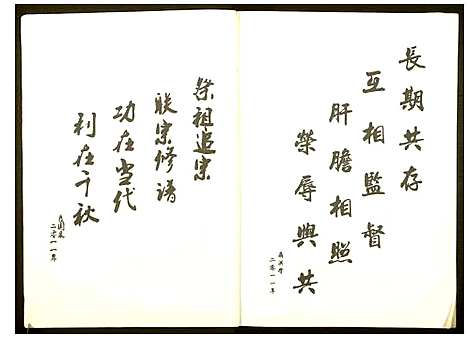 長期共存
互相監督
肝膽相照
榮辱與共
二零一一年
祭祖追宗
联宗修谱
功在当代
利在千秋
二零一一年